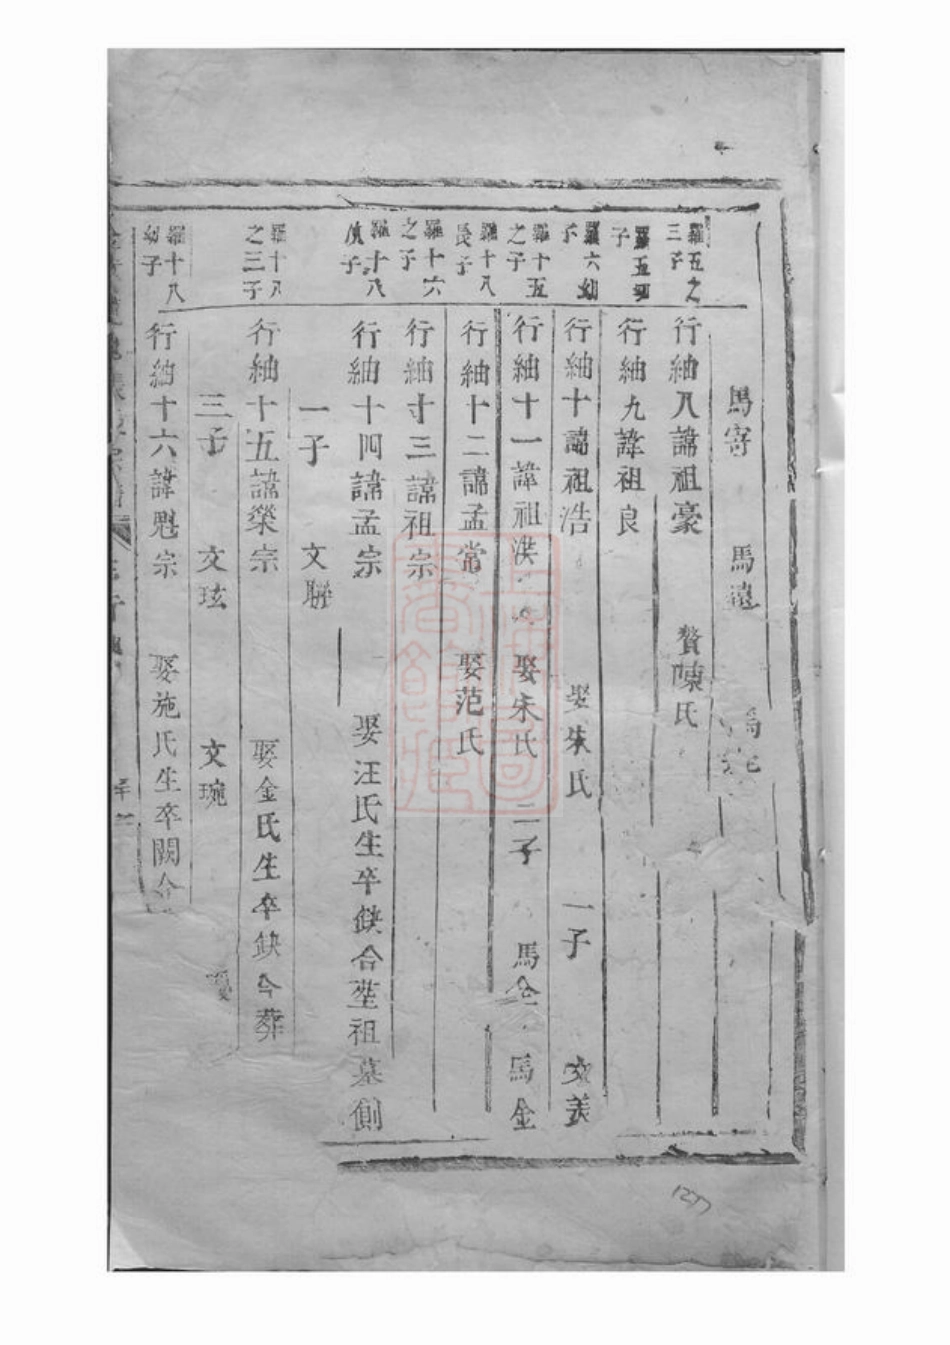 馬寄 馬遠
羅五之三子
行紬八諱祖豪 贅陳氏
羅五四子
行紬九諱祖良
羅六幼子
行紬十諱祖浩 娶朱氏 一子 文美
羅十五之子
行紬十一諱祖洪 娶朱氏 二子 馬全 馬金
羅十八長子
行紬十二諱孟常 娶范氏
羅十六之子
行紬十三諱祖宗
羅十八次子
行紬十四諱孟宗 娶汪氏生卒缺合塟祖墓側
一子 文聯
羅十八之三子
行紬十五諱榮宗 娶金氏生卒缺合葬
三子 文玹 文琬
羅十八幼子
行紬十六諱魁宗 娶施氏生卒闕合
1277